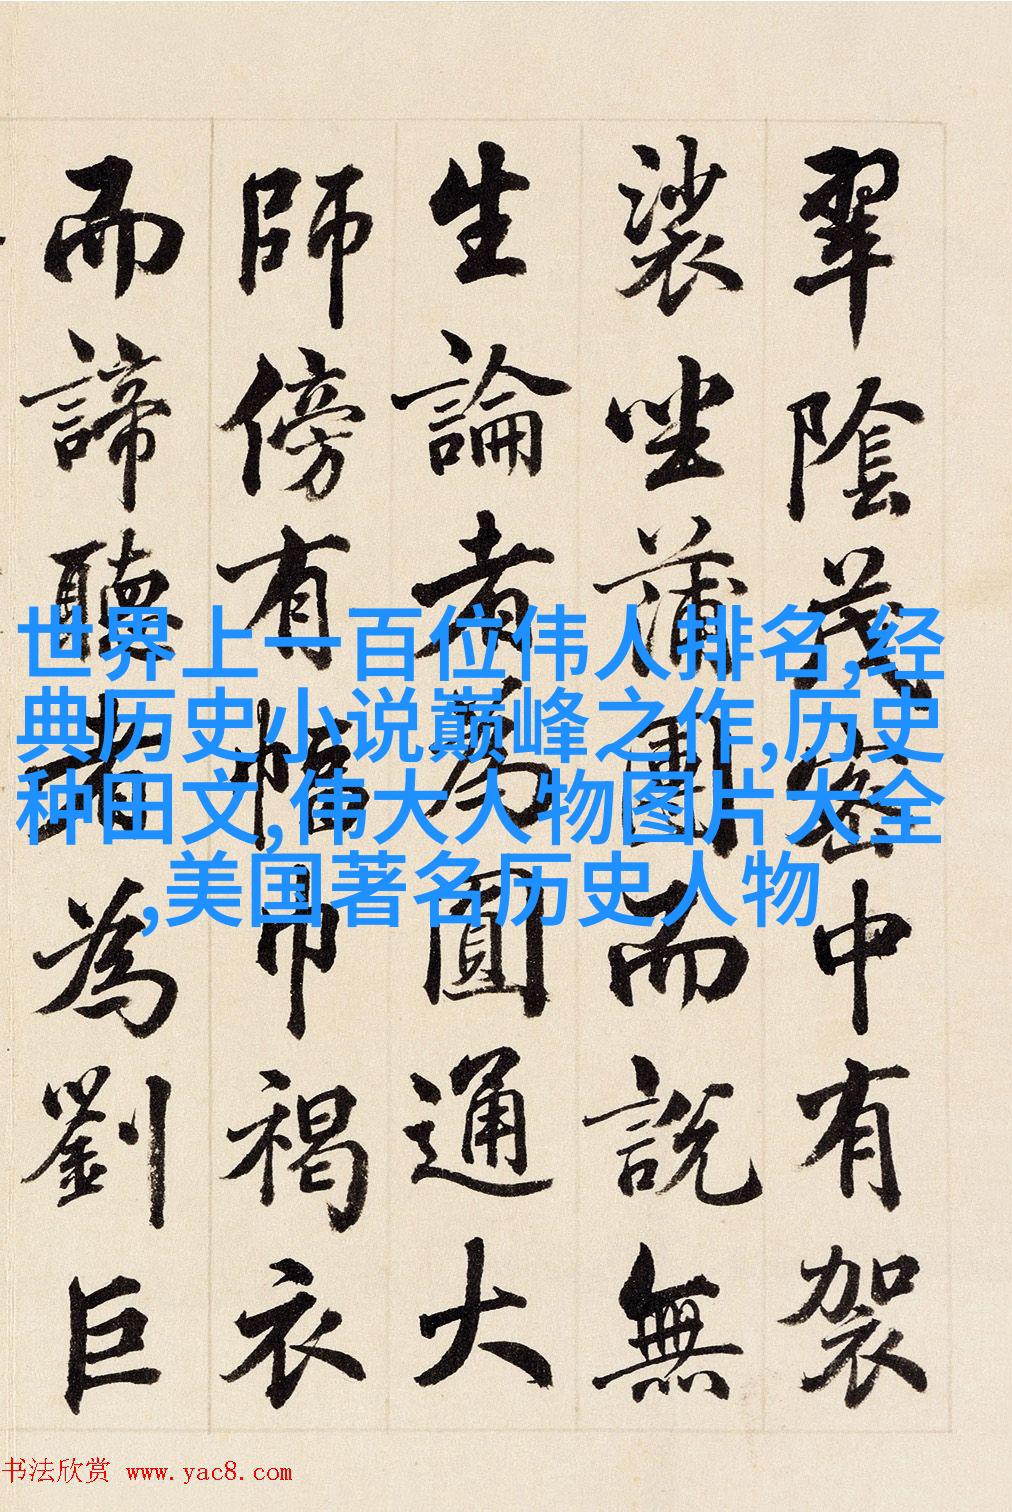 翠陰茂密中有袈
裟坐蒲團而說無
生論者為圓通大
師傍有幅巾褐衣
而諦聽者為劉巨
世界上一百位伟人排名,经
典历史小说巅峰之作,历史
种田文,伟大人物图片大全
,美国著名历史人物
书法欣赏 www.yac8.com